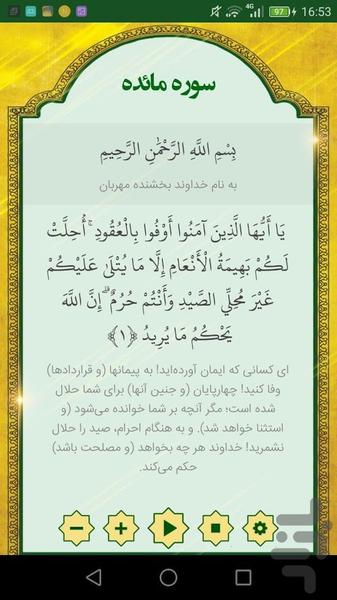 4G 97 16:53
سوره مائده
بِسْمِ اللَّهِ الرَّحْمَٰنِ الرَّحِيمِ
به نام خداوند بخشنده مهربان
يَا أَيُّهَا الَّذِينَ آمَنُوا أَوْفُوا بِالْعُقُودِ ۚ أُحِلَّتْ
لَكُمْ بَهِيمَةُ الْأَنْعَامِ إِلَّا مَا يُتْلَىٰ عَلَيْكُمْ
غَيْرَ مُحِلِّي الصَّيْدِ وَأَنْتُمْ حُرُمٌ ۗ إِنَّ اللَّهَ
يَحْكُمُ مَا يُرِيدُ ﴿١﴾
ای کسانی که ایمان آورده‌اید! به پیمانها (و قراردادها)
وفا کنید! چهارپایان (و جنین آنها) برای شما حلال
شده است؛ مگر آنچه بر شما خوانده می‌شود (و
استثنا خواهد شد). و به هنگام احرام، صید را حلال
نشمرید! خداوند هر چه بخواهد (و مصلحت باشد)
حکم می‌کند.
بازار